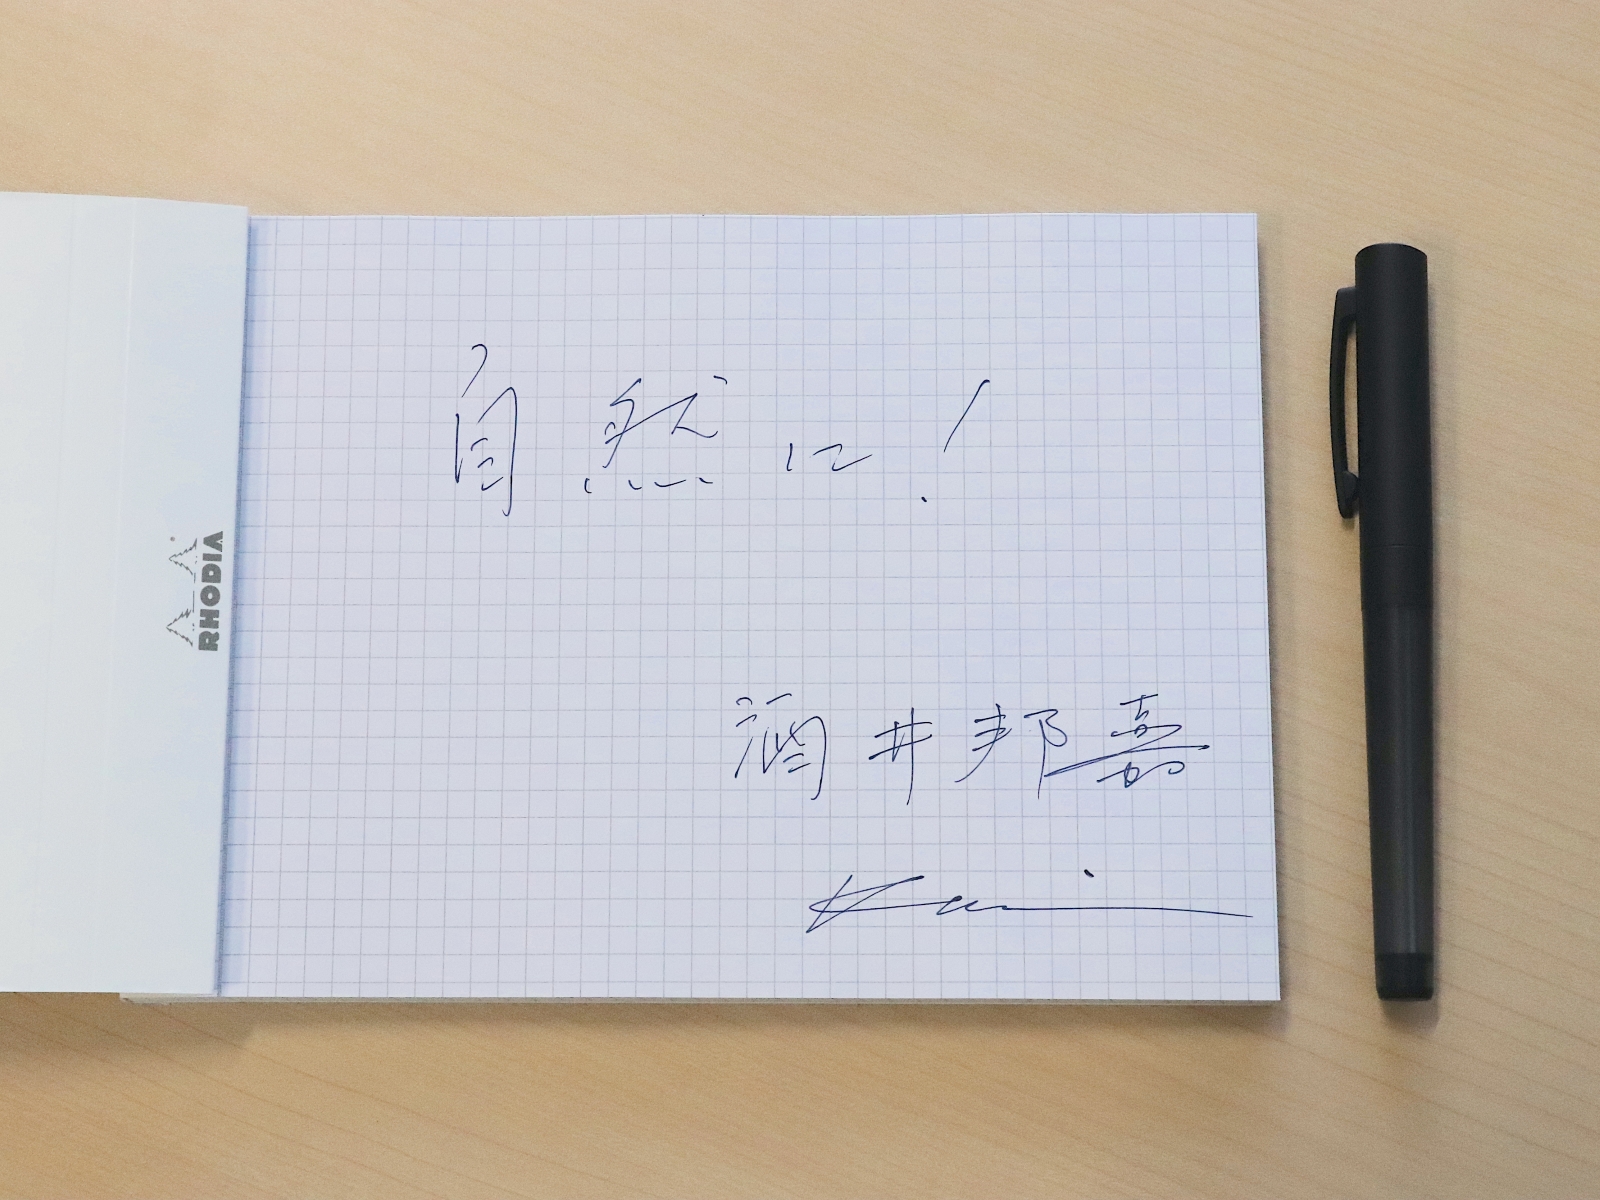 自然に!
酒井邦嘉
RHODIA